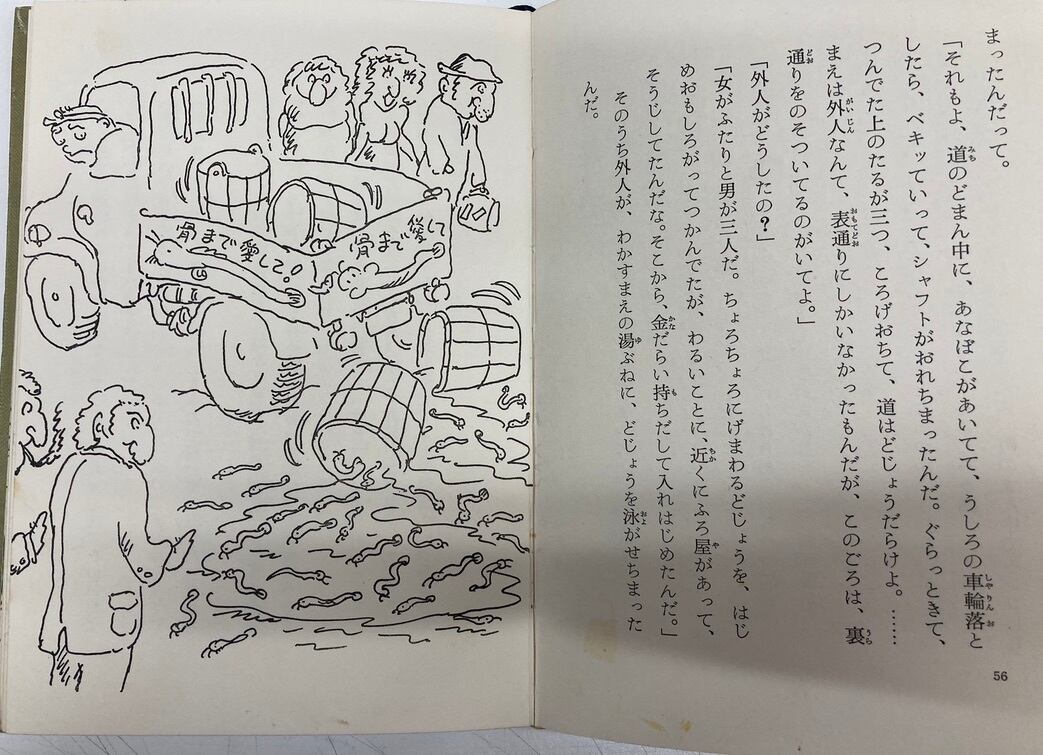 まったんだって。
「それもよ、道のどまん中に、あなぼこがあいてて、うしろの車輪落と
したら、ベキッていって、シャフトがおれちまったんだ。ぐらっときて、
つんでた上のたるが三つ、ころげおちて、道はどじょうだらけよ。……
まえは外人なんて、表通りにしかいなかったもんだが、このごろは、裏
通りをのそついてるのがいてよ。」
「外人がどうしたの？」
「女がふたりと男が三人だ。ちょろちょろにげまわるどじょうを、はじ
めおもしろがってつかんでたが、わるいことに、近くにふろ屋があって、
そうじしてたんだな。そこから、金だらい持ちだして入れはじめたんだ。」
そのうち外人が、わかすまえの湯ぶねに、どじょうを泳がせちまった
んだ。
56
骨まで愛して！
骨まで愛して